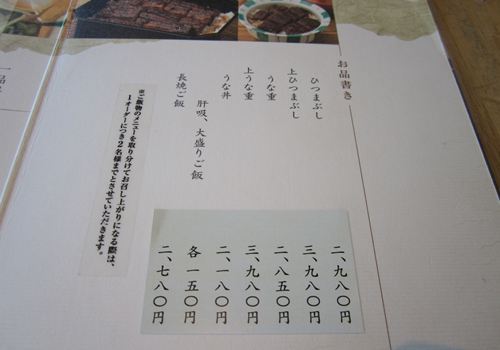 お品書き
ひつまぶし
上ひつまぶし
うな重
上うな重
うな丼
肝吸、大盛りご飯
長焼ご飯
二、九八〇円
三、九八〇円
二、八五〇円
三、九八〇円
二、一八〇円
各 一五〇円
二、七八〇円
※ご飯物のメニューを取り分けてお召し上がりになる際は、
1オーダーにつき2名様までとさせていただきます。
一品